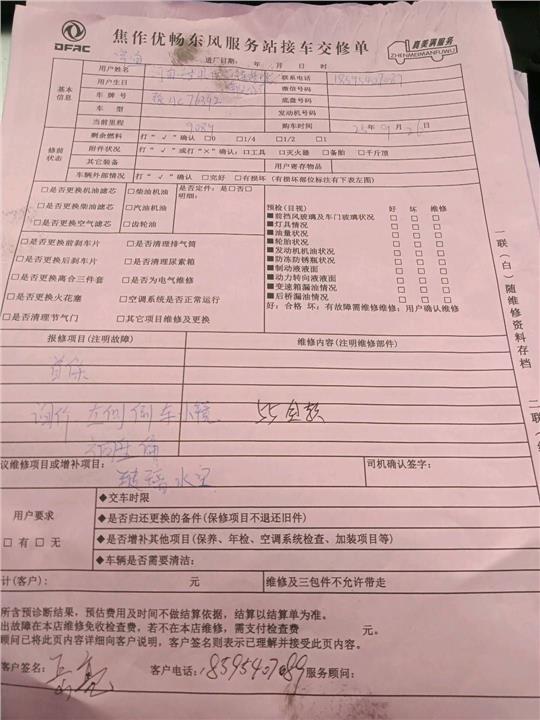 DFAC
焦作优畅东风服务站接车交修单
真美满服务
ZHENMEIMANFUWU
进厂日期: 年 月 日 时
基本信息
用户姓名
联系电话 18595407089
用户生日
微信号码
车牌号
底盘号码
车型
发动机号码
当前里程 9089
购车时间 年 09 月 26 日
修前状态
剩余燃料 打“√”确认 □0 □1/4 □1/2 □1
附件状况 打“√”或打“×”确认: □工具 □灭火器 □备胎 □千斤顶
其它装备 用户寄存物品
车辆外部情况 打“√”确认 □完好 □有损坏 (有损坏部位标注有下表左图)
□是否更换机油滤芯 □柴油机油 是否定件: 是□否□
□是否更换柴油滤芯 □汽油机油 明细:
□是否更换空气滤芯 □齿轮油
□是否更换前刹车片 □是否清理排气筒
□是否更换后刹车片 □是否清理尿素箱
□是否更换离合三件套 □是否为电气维修
□是否更换火花塞 □空调系统是否正常运行
□是否清理节气门 □其它项目维修及更换
预检(目视) 好 坏 维修
■前挡风玻璃及车门玻璃状况 □ □ □
■灯具情况 □ □ □
■油量状况 □ □ □
■轮胎状况 □ □ □
■发动机机油状况 □ □ □
■防冻防锈瓶状况 □ □ □
■制动液液面 □ □ □
■动力转向液液面 □ □ □
■变速箱漏油情况 □ □ □
■后桥漏油情况 □ □ □
好: 合格 坏: 有故障需维修维修: 用户确认维修
一联(白)随维修资料存档
二联
报修项目(注明故障) 维修内容(注明维修部件)
首保
询价 左侧倒车小镜 55自款
玻璃水宝
议维修项目或增补项目:
司机确认签字:
用户要求
□有 □无
◆交车时限
◆是否归还更换的备件(保修项目不退还旧件)
◆是否增补其他项目(保养、年检、空调系统检查、加装项目等)
◆车辆是否需要清洁:
计(客户): 元 维修及三包件不允许带走
所含预诊断结果，预估费用及时间不做结算依据，结算以结算单为准。
出故障在本店维修免收检查费，若不在本店维修，需支付检查费 元。
顾问已将此页内容详细向客户说明，客户签名则表示已理解并接受此页内容。
客户签名: 客户电话: 18595407089 服务顾问: